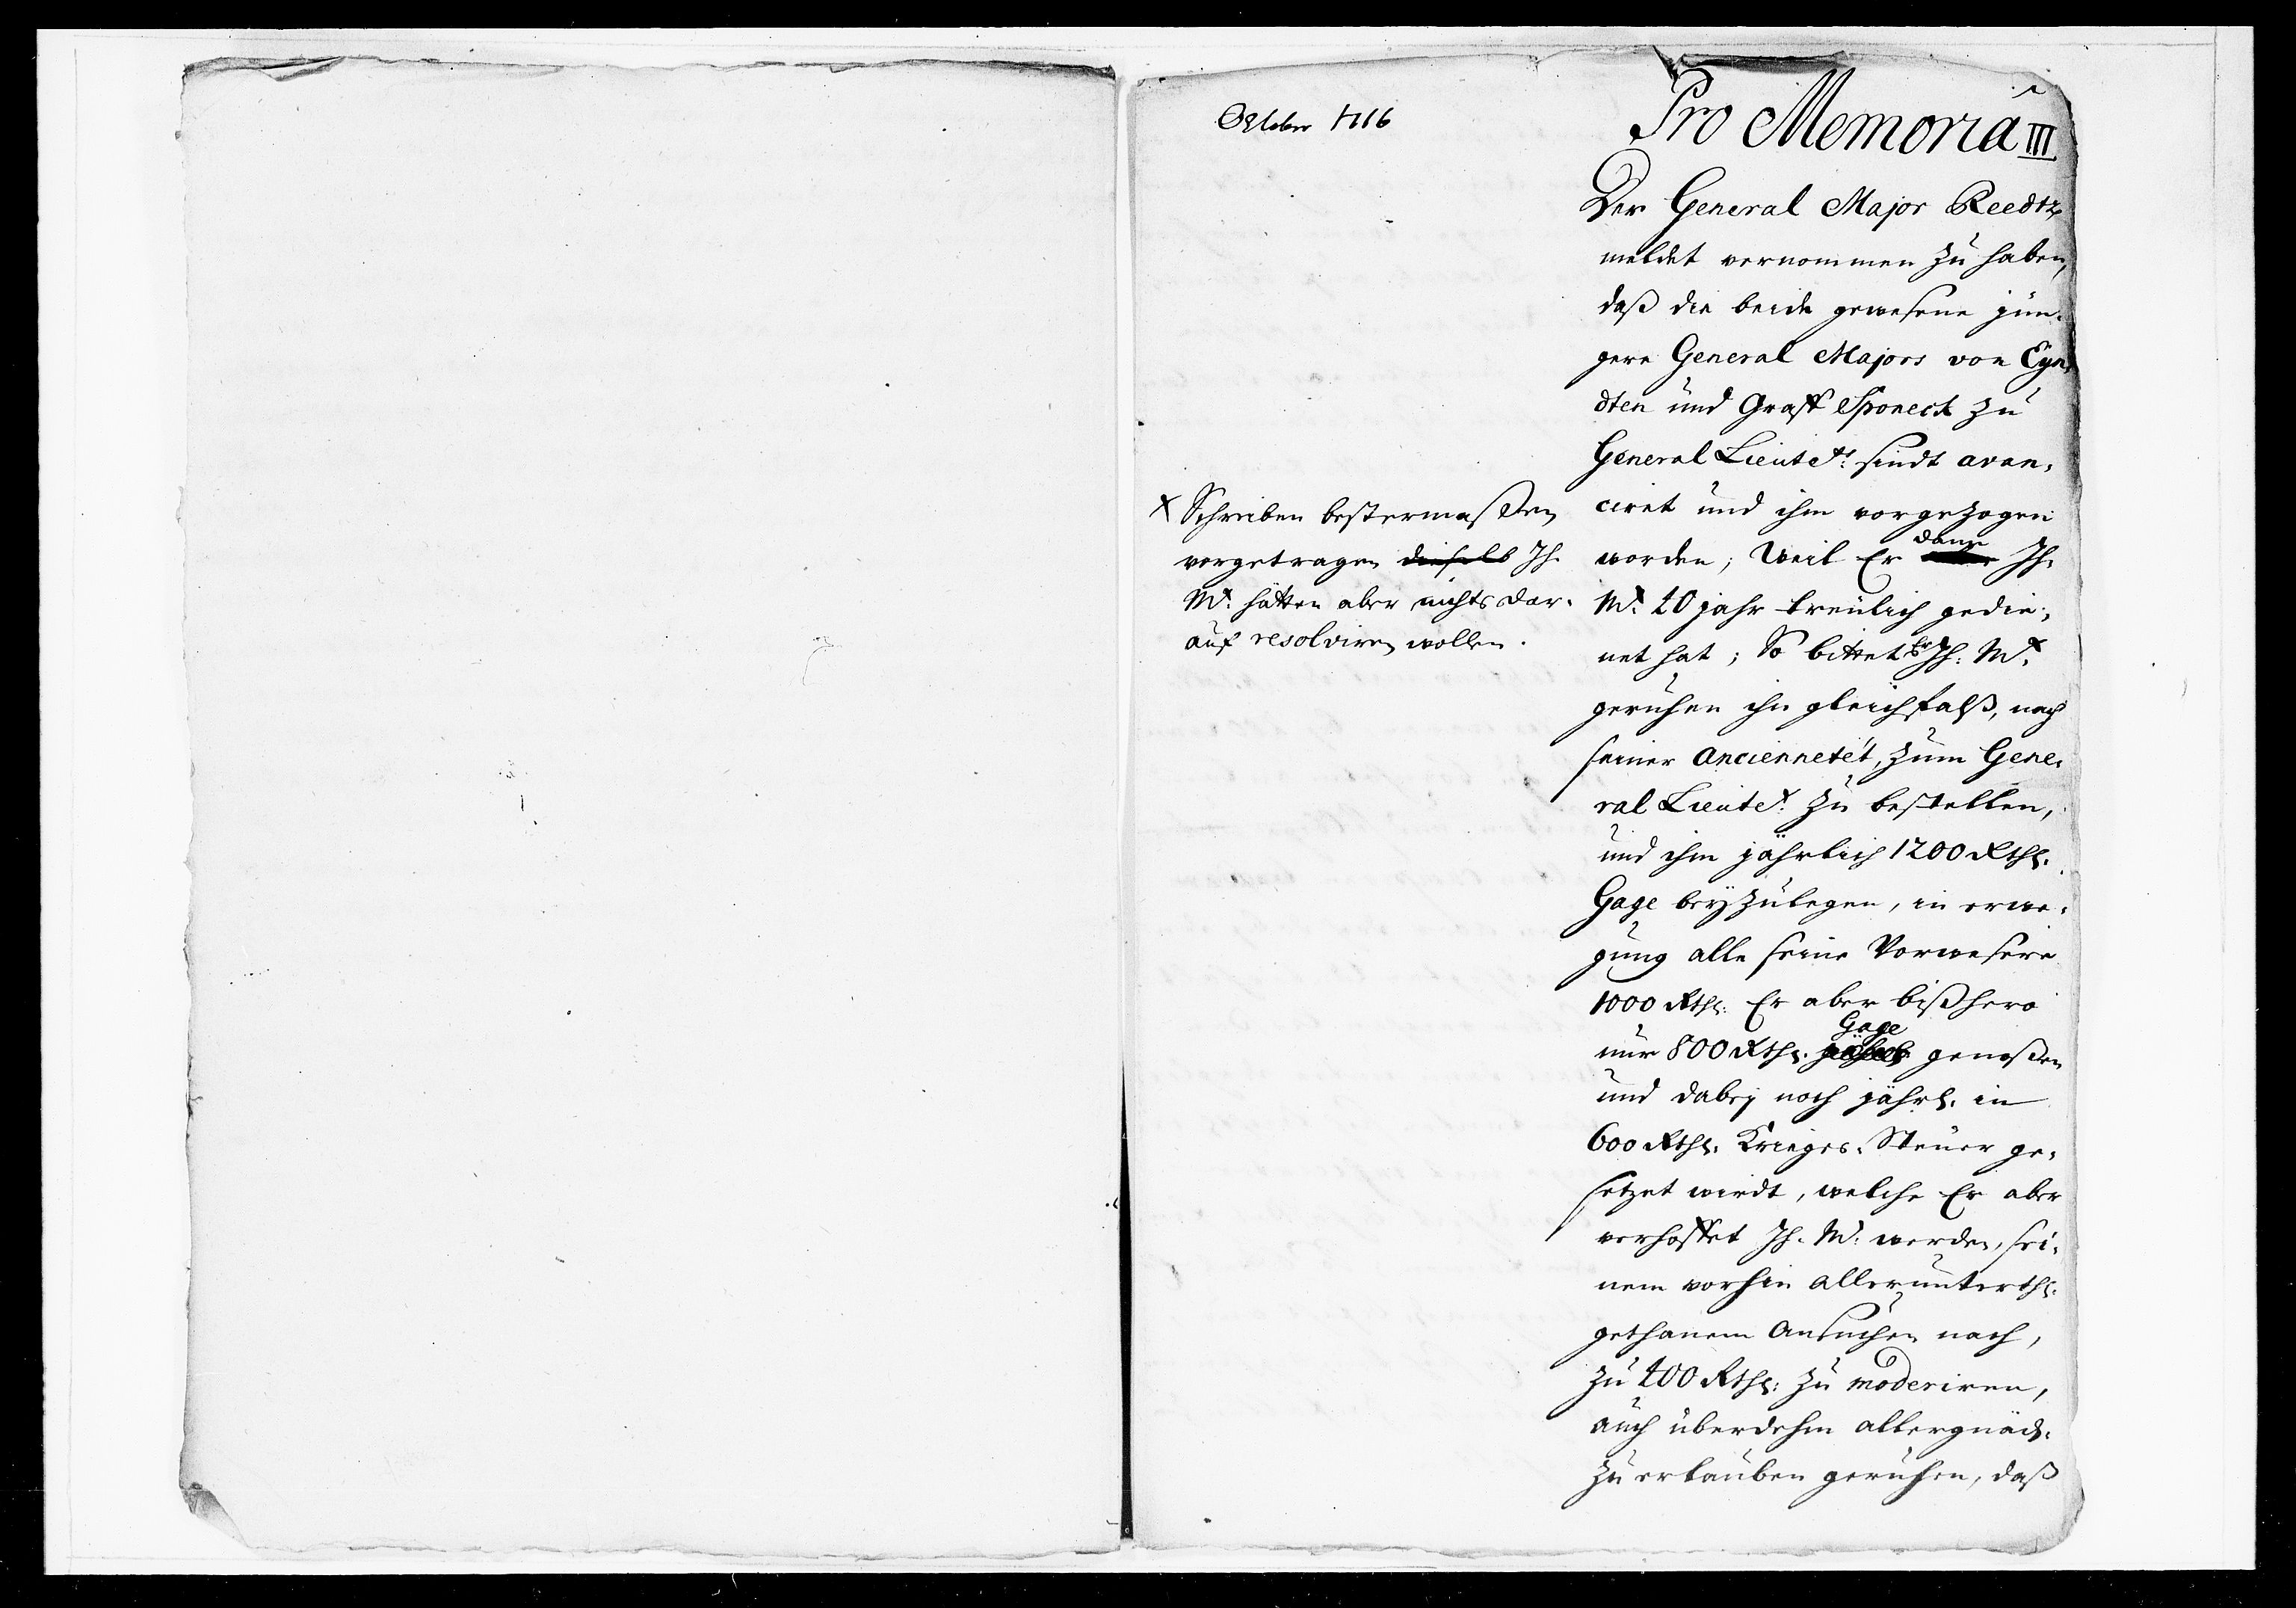 October 1716
Pro Memoria III
Der General Major Reedtz
meldet vernommen zu haben,
daß die beide gewesene jün-
gere General Majors von Eyn-
dten und Graff Sponeck zu
General Lieutets: sindt avan-
ciret und ihm vorgezogen
worden; Weil Er dann Ih.
Mt. 40 jahr treulich gedie-
net hat; So bittet Er Ih: Mt.
geruhen ihn gleichfalß, nach
seiner anciennetét, zum Gene-
ral Lieutet. zu bestellen,
und ihm jährlich 1200 Rthl.
Gage beyzulegen, in erwe-
gung alle seine Vorwesere
1000 Rthl: Er aber bißhero
nur 800 Rthl. Gage genoßen
und dabey noch jährl. in
600 Rthl. Krieges-Steuer ge-
setzet wirdt, welche Er aber
verhoffet Ih. Mt. werden, sei-
nem vorhin allerunterth.
gethanem Ansuchen nach,
zu 400 Rthl: zu moderiren,
auch überdehm allergnäd.
zu erlauben geruhen, daß
X Schreiben bestermaßen
vorgetragen dieselb Ih.
Mt. hätten aber nichts dar-
auf resolviren wollen.